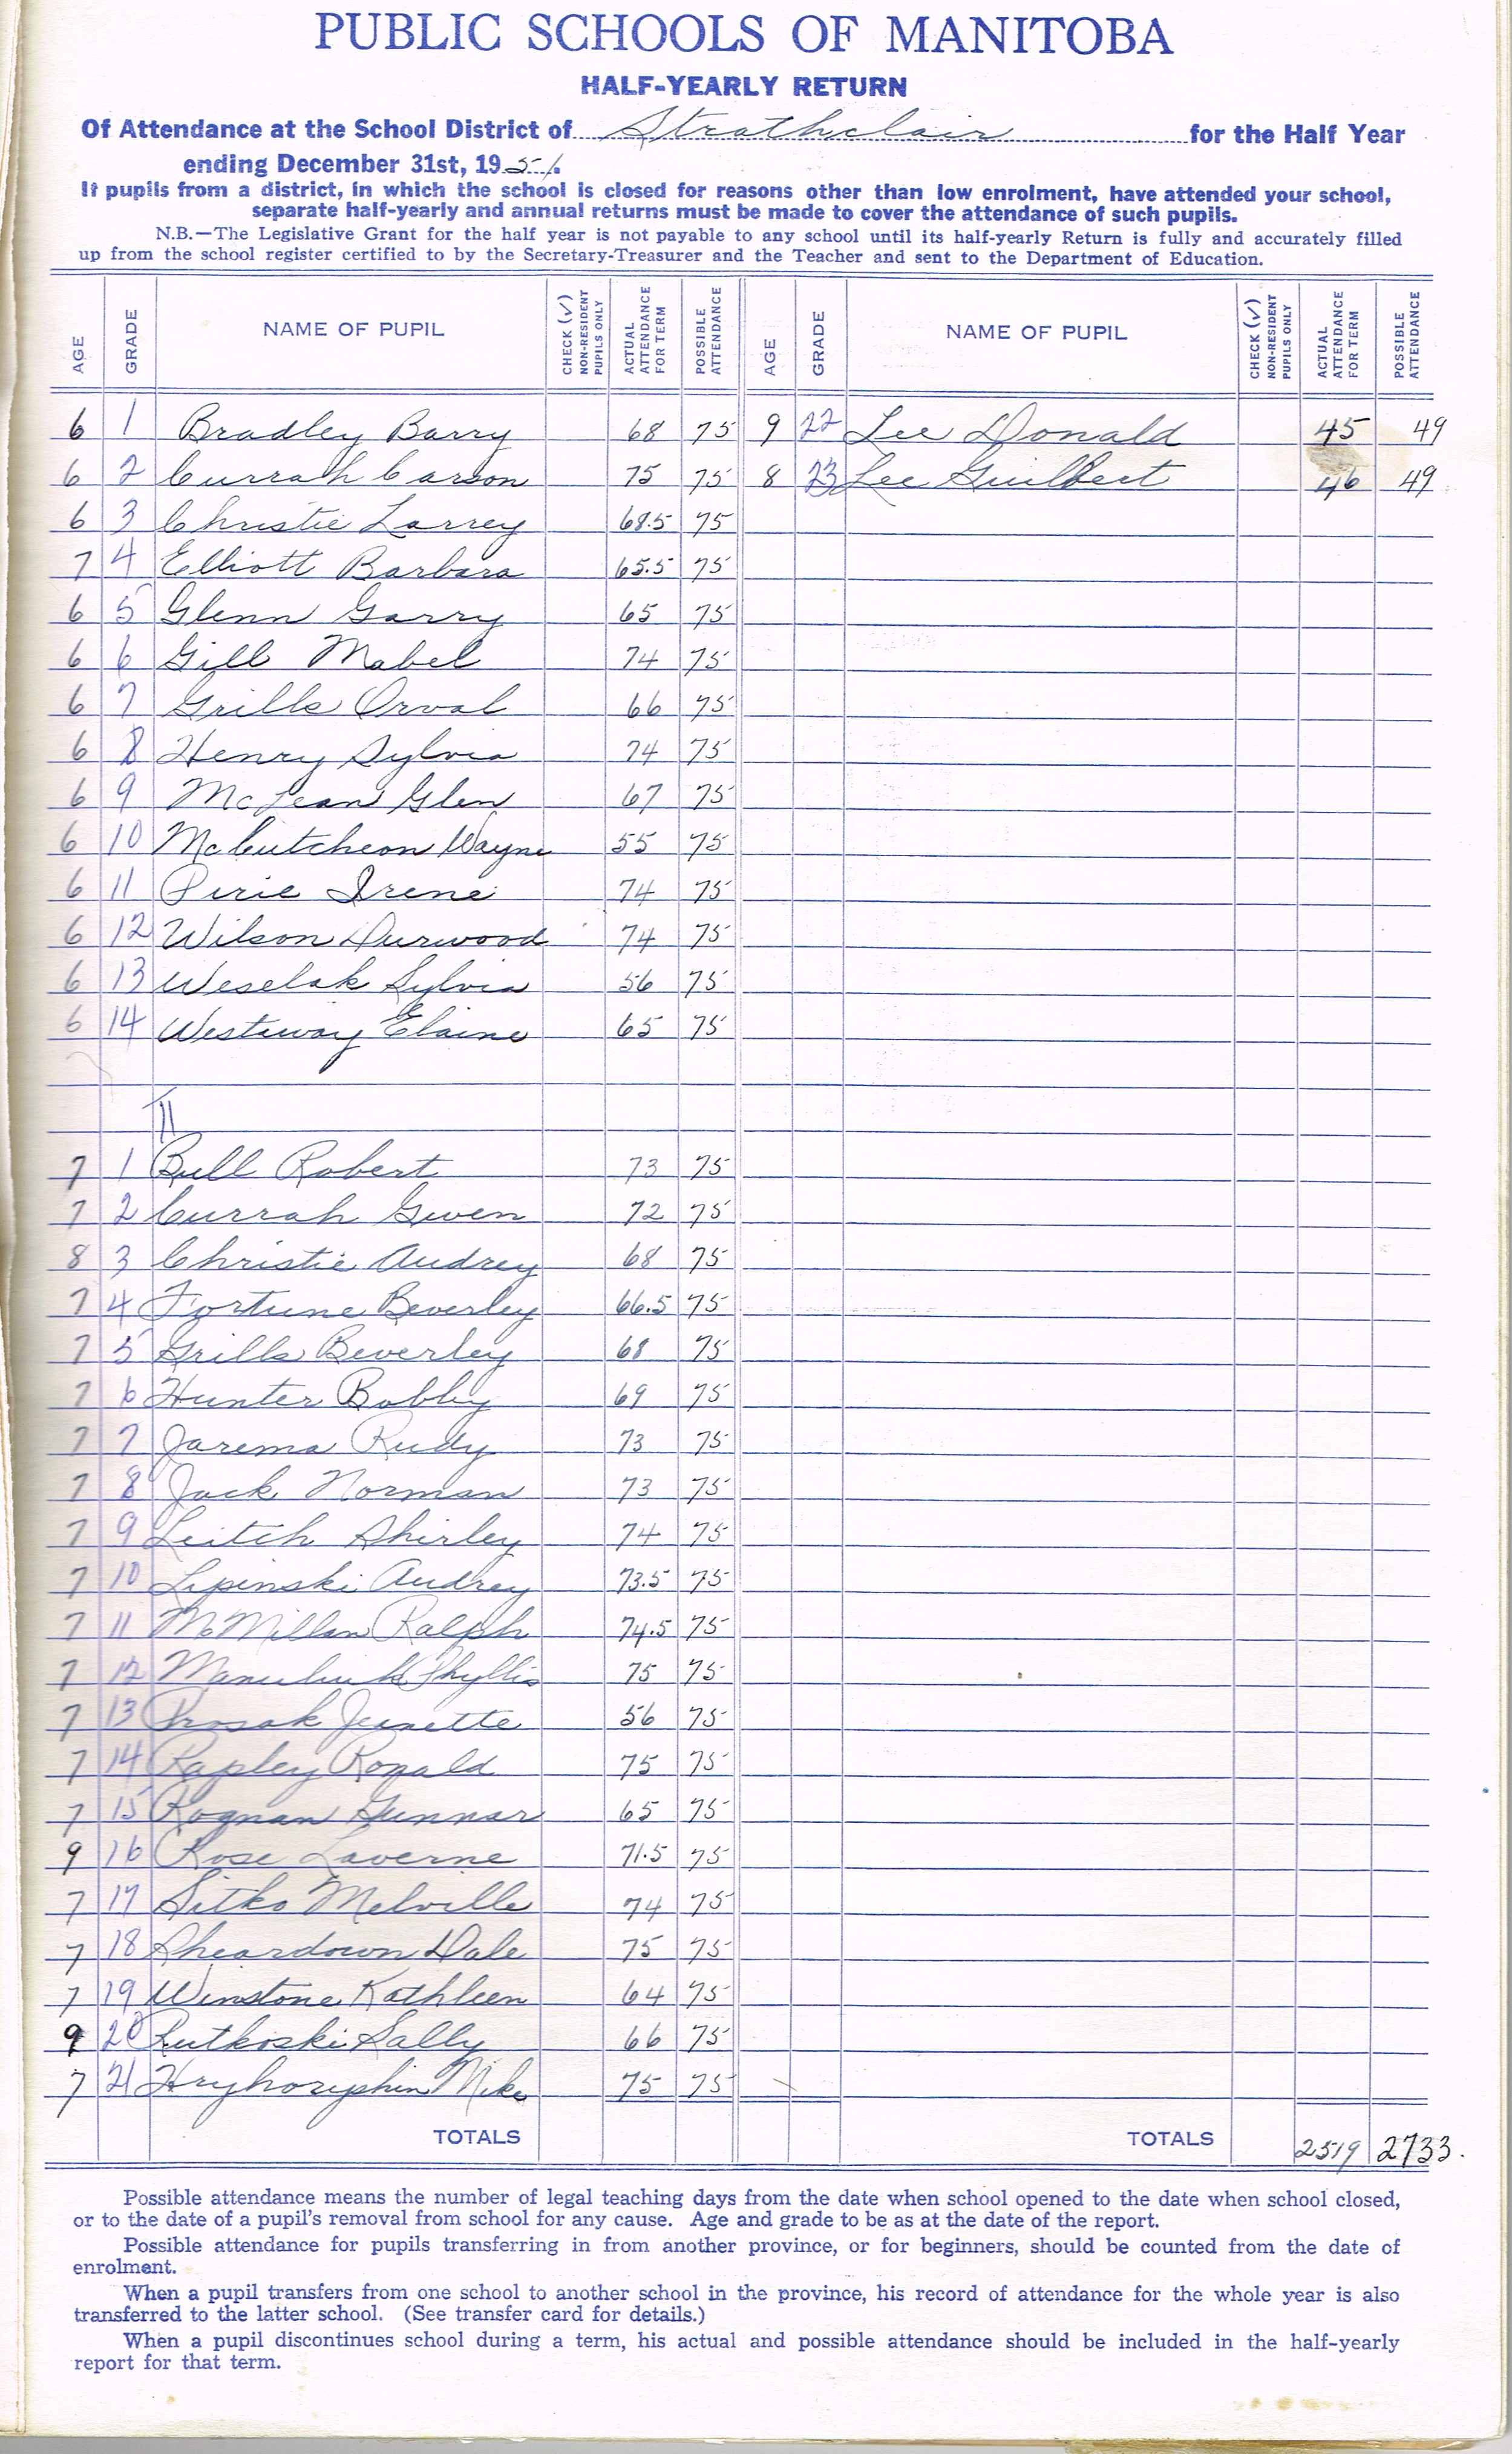 PUBLIC SCHOOLS OF MANITOBA
HALF-YEARLY RETURN
Of Attendance at the School District of Strathclair for the Half Year
ending December 31st, 1951.
If pupils from a district, in which the school is closed for reasons other than low enrolment, have attended your school,
separate half-yearly and annual returns must be made to cover the attendance of such pupils.
N.B.—The Legislative Grant for the half year is not payable to any school until its half-yearly Return is fully and accurately filled
up from the school register certified to by the Secretary-Treasurer and the Teacher and sent to the Department of Education.
AGE GRADE NAME OF PUPIL CHECK (√) NON-RESIDENT PUPILS ONLY ACTUAL ATTENDANCE FOR TERM POSSIBLE ATTENDANCE AGE GRADE NAME OF PUPIL CHECK (√) NON-RESIDENT PUPILS ONLY ACTUAL ATTENDANCE FOR TERM POSSIBLE ATTENDANCE
6 1 Bradley Barry 68 75 9 22 Lee Donald 45 49
6 2 Currah Carson 75 75 8 23 Lee Guilbert 46 49
6 3 Christie Larrey 68.5 75
7 4 Elliott Barbara 65.5 75
6 5 Glenn Garry 65 75
6 6 Gill Mabel 74 75
6 7 Grills Orval 66 75
6 8 Henry Sylvia 74 75
6 9 McLean Glen 67 75
6 10 McCutcheon Wayne 55 75
6 11 Pirie Irene 74 75
6 12 Wilson Durwood 74 75
6 13 Weselak Sylvia 56 75
6 14 Westaway Elaine 65 75
II
7 1 Bull Robert 73 75
7 2 Currah Gwen 72 75
8 3 Christie Audrey 68 75
7 4 Fortune Beverley 66.5 75
7 5 Grills Beverley 68 75
7 6 Hunter Bobby 69 75
7 7 Jarema Rudy 73 75
7 8 Jack Norman 73 75
7 9 Leitch Shirley 74 75
7 10 Lipinski Audrey 73.5 75
7 11 McMillan Ralph 74.5 75
7 12 Phyllis 75 75
7 13 Prosak Jeanette 56 75
7 14 Rapley Ronald 75 75
7 15 Rognan Gunnar 65 75
9 16 Rose Laverne 71.5 75
7 17 Sitko Melville 74 75
7 18 Sheardown Dale 75 75
7 19 Winstone Kathleen 64 75
9 20 Rutkoski Sally 66 75
7 21 Mike 75 75
TOTALS TOTALS 2519 2733.
Possible attendance means the number of legal teaching days from the date when school opened to the date when school closed,
or to the date of a pupil's removal from school for any cause. Age and grade to be as at the date of the report.
Possible attendance for pupils transferring in from another province, or for beginners, should be counted from the date of
enrolment.
When a pupil transfers from one school to another school in the province, his record of attendance for the whole year is also
transferred to the latter school. (See transfer card for details.)
When a pupil discontinues school during a term, his actual and possible attendance should be included in the half-yearly
report for that term.